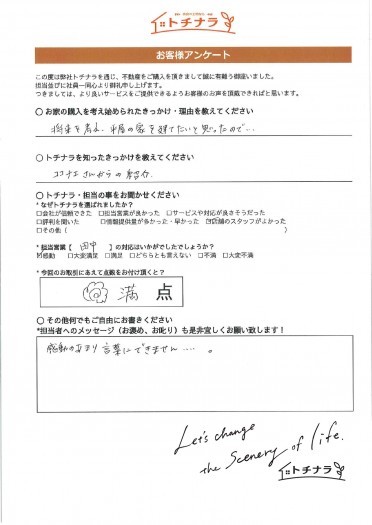 トチナラ
お客様アンケート
この度は弊社トチナラを通じ、不動産をご購入を頂きまして誠に有難う御座いました。
担当並びに社員一同心より御礼申し上げます。
つきましては、より良いサービスをご提供できるようお客様のお声を頂戴できればと思います。
○ お家の購入を考え始められたきっかけ・理由を教えてください
将来を考え、平屋の家を建てたいと思ったので…
○ トチナラを知ったきっかけを教えてください
さんからの紹介
○ トチナラ・担当の事をお聞かせください
* なぜトチナラを選ばれましたか？
□会社が信頼できた □担当営業が良かった □サービスや対応が良さそうだった
□評判を聞いた □情報提供量が多かった・早かった ☑店舗のスタッフがよかった
□その他（ ）
* 担当営業【 田中 】の対応はいかがでしたでしょうか？
☑感動 □大変満足 □満足 □どちらとも言えない □不満 □大変不満
* 今回のお取引にあえて点数をお付け頂くと？
満 点
○ その他何でもご自由にお書きください
*担当者へのメッセージ（お褒め、お叱り）も是非宜しくお願い致します！
感動のあまり言葉にできません……。
Let's change
the Scenery of life.
トチナラ